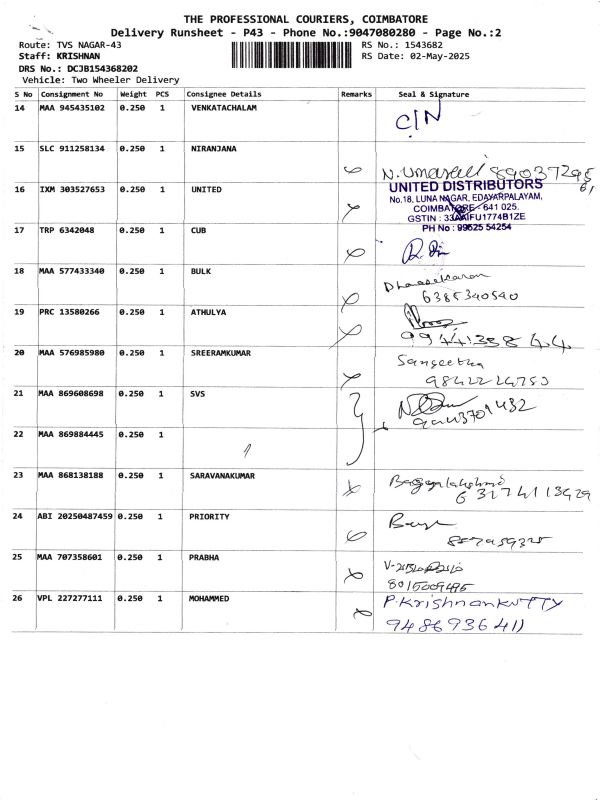 THE PROFESSIONAL COURIERS, COIMBATORE
Delivery Runsheet - P43 - Phone No.:9047080280 - Page No.:2
Route: TVS NAGAR-43 RS No.: 1543682
Staff: KRISHNAN RS Date: 02-May-2025
DRS No.: DCJB154368202
Vehicle: Two Wheeler Delivery
S No Consignment No Weight PCS Consignee Details Remarks Seal & Signature
14 MAA 945435102 0.250 1 VENKATACHALAM C/N
15 SLC 911258134 0.250 1 NIRANJANA
16 IXM 303527653 0.250 1 UNITED
UNITED DISTRIBUTORS
No.18, LUNA NAGAR, EDAYARPALAYAM,
COIMBATORE - 641 025.
GSTIN : 33AAIFU1774B1ZE
PH No : 99625 54254
17 TRP 6342048 0.250 1 CUB
18 MAA 577433340 0.250 1 BULK
6385340540
19 PRC 13580266 0.250 1 ATHULYA
20 MAA 576985980 0.250 1 SREERAMKUMAR Sangeetha
21 MAA 869608698 0.250 1 SVS
22 MAA 869884445 0.250 1 "
23 MAA 868138188 0.250 1 SARAVANAKUMAR
24 ABI 20250487459 0.250 1 PRIORITY
25 MAA 707358601 0.250 1 PRABHA
8015009495
26 VPL 227277111 0.250 1 MOHAMMED P.KrishnanKUTTY
9486936411